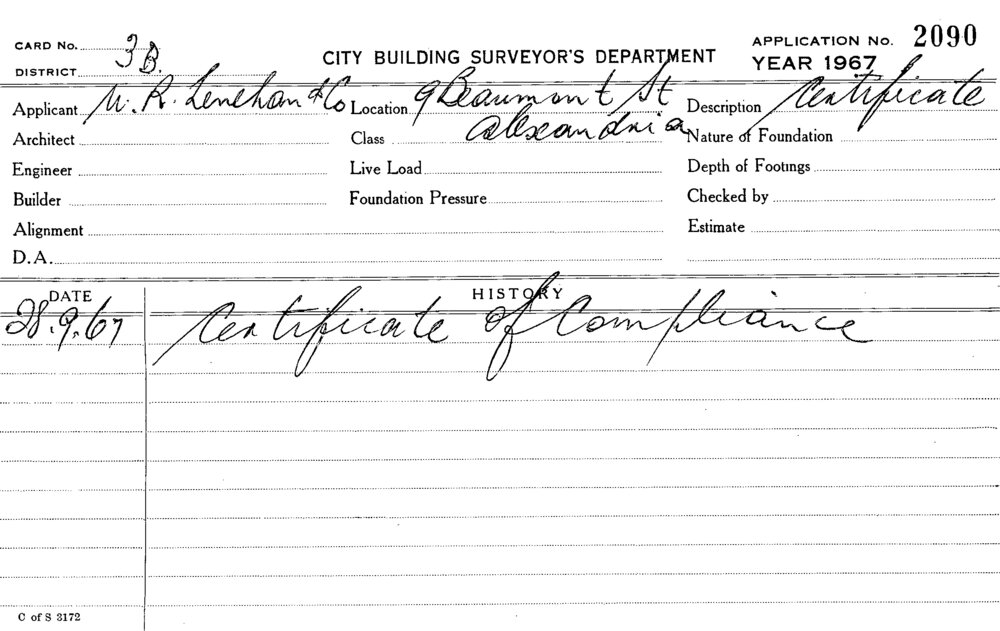 CARD No. 3B. CITY BUILDING SURVEYOR'S DEPARTMENT APPLICATION No. 2090
DISTRICT YEAR 1967
Applicant W. R. Lenehan & Co Location 9 Beaumont St Description Certificate
Architect Class Alexandria Nature of Foundation
Engineer Live Load Depth of Footings
Builder Foundation Pressure Checked by
Alignment Estimate
D.A.
DATE HISTORY
28.9.67 Certificate of Compliance
C of S 3172